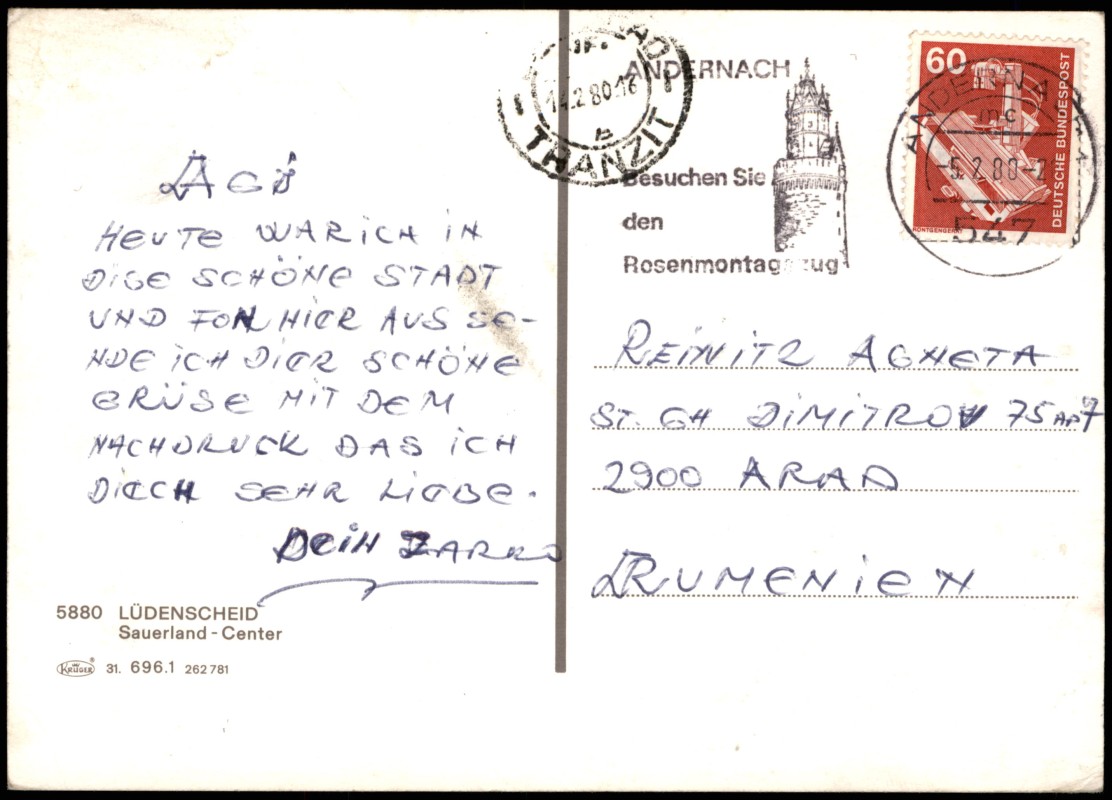 AGI
HEUTE WAR ICH IN
DISE SCHÖNE STADT
UND FON HIER AUS SE-
NDE ICH DIER SCHÖNE
GRÜSE MIT DEM
NACHDRUCK DAS ICH
DIECH SEHR LIEBE.
DEIN ZARKO
5880 LÜDENSCHEID
Sauerland-Center
KRÜGER 31. 696.1 262 781
ARAD
14.2.80.16
TRANZIT
ANDERNACH
Besuchen Sie
den
Rosenmontagszug
60
DEUTSCHE BUNDESPOST
RÖNTGENGERÄT
ANDERNACH
mc
-5.2.80-2
547
REINITZ AGNETA
ST. GH DIMITROV 75 AP7
2900 ARAD
RUMENIEN